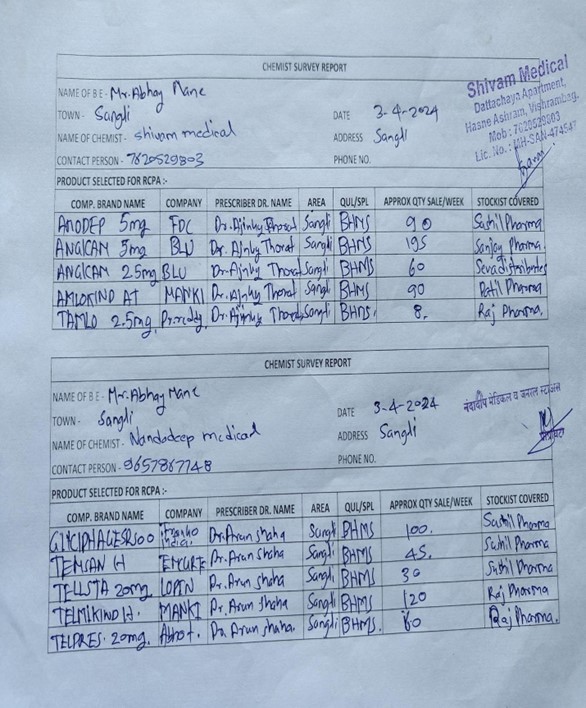 CHEMIST SURVEY REPORT
NAME OF B E - Mr. Abhay Mane
TOWN - Sangli
DATE 3-4-2024
NAME OF CHEMIST - shivam medical
ADDRESS Sangli
CONTACT PERSON - 7620529803
PHONE NO.
Shivam Medical
Dattachaya Apartment,
Hasne Ashram, Vishrambag,
Mob : 7620529803
Lic. No. : MH-SAN-474547
PRODUCT SELECTED FOR RCPA :-
COMP. BRAND NAME COMPANY PRESCRIBER DR. NAME AREA QUL/SPL APPROX QTY SALE/WEEK STOCKIST COVERED
AMODEP 5mg FDC Dr. Ajinky Thorat Sangli BHMS 90 Sushil Pharma
ANGICAM 5mg BLU Dr. Ajinky Thorat Sangli BHMS 195 Sanjay Pharma.
ANGICAM 2.5mg BLU Dr. Ajinky Thorat Sangli BHMS 60 Seva distributes
AMLOKIND AT MANKI Dr. Ajinky Thorat Sangli BHMS 90 Patil Pharma
TAMLO 2.5mg. Dr. reddy. Dr. Ajinky Thorat Sangli BHMS. 8. Raj Pharma.
CHEMIST SURVEY REPORT
NAME OF B E - Mr. Abhay Mane
TOWN - Sangli
DATE 3-4-2024
NAME OF CHEMIST - Nandadeep medical
ADDRESS Sangli
CONTACT PERSON - 9657867748
PHONE NO.
नंदादीप मेडिकल व जनरल स्टोअर्स
PRODUCT SELECTED FOR RCPA :-
COMP. BRAND NAME COMPANY PRESCRIBER DR. NAME AREA QUL/SPL APPROX QTY SALE/WEEK STOCKIST COVERED
GLYCIPHAGE SR 500 Dr. Arun shaha Sangli BHMS 100. Sushil Pharma
TEMSAN H EMCURE Dr. Arun Shaha Sangli BHMS 45. Sushil Pharma
TELLSTA 20mg. LUPIN Dr. Arun shaha Sangli BHMS 30 Sushil Pharma
TELMIKIND H. MANKI Dr. Arun shaha Sangli BHMS 120 Raj Pharma
TELPRES. 20mg. Abbot. Dr. Arun shaha. Sangli BHMS. 60 Raj Pharma.